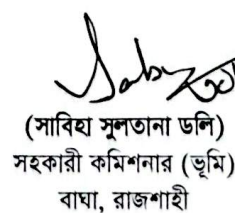 (সাবিহা সুলতানা ডলি)
সহকারী কমিশনার (ভূমি)
বাঘা, রাজশাহী